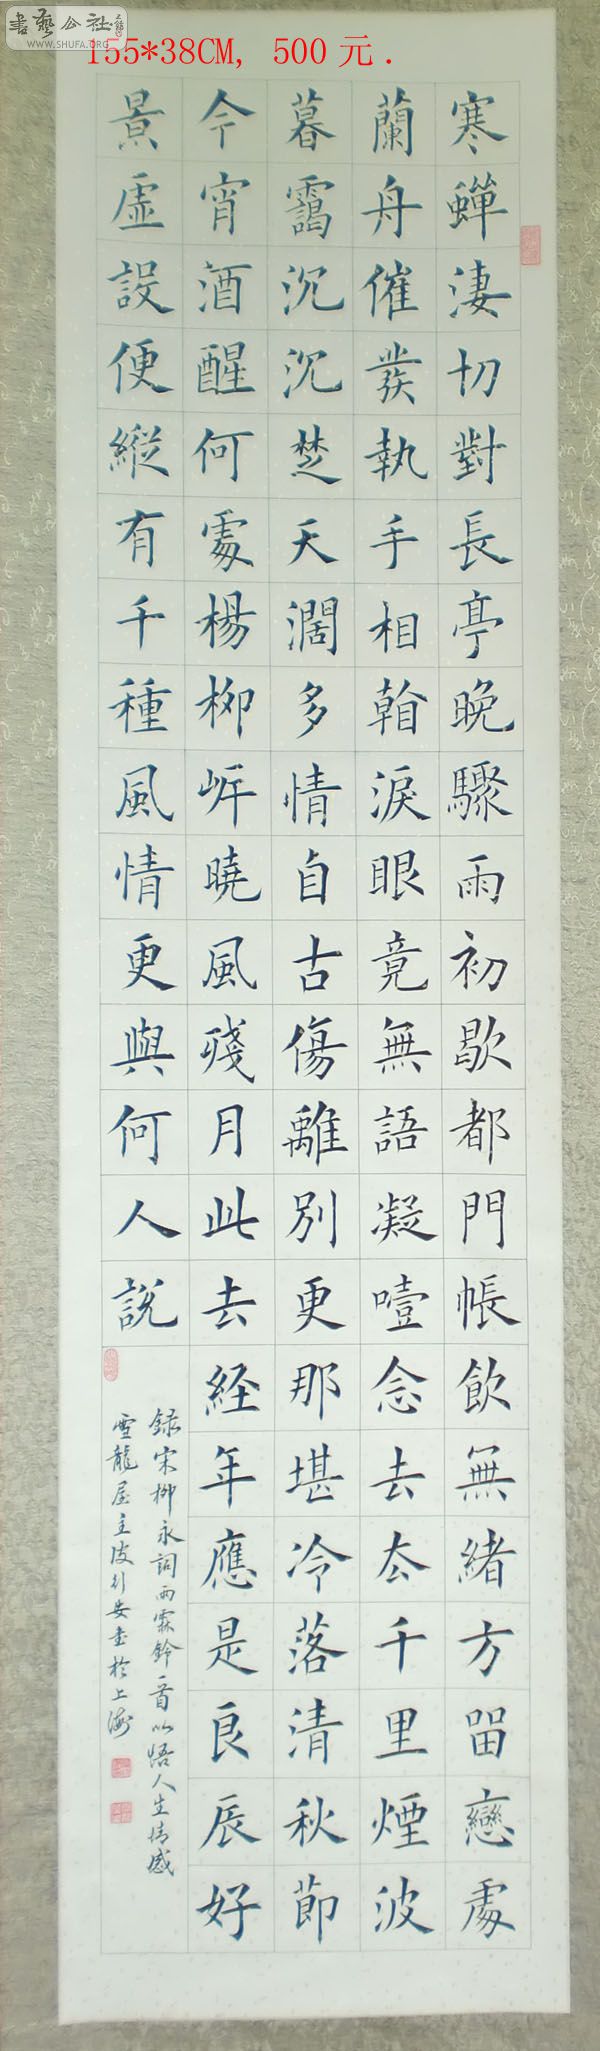 書藝公社
WWW.SHUFA.ORG
155*38CM, 500元.
寒蟬淒切對長亭晚驟雨初歇都門帳飲無緒方留戀處
蘭舟催發執手相看淚眼竟無語凝噎念去去千里煙波
暮靄沉沉楚天濶多情自古傷離別更那堪冷落清秋節
今宵酒醒何處楊柳岸曉風殘月此去経年應是良辰好
景虛設便縱有千種風情更與何人說
録宋柳永詞雨霖鈴一首以悟人生情感
雪龍屋主 書於上海